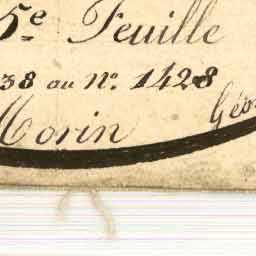 5e Feuille
38 au No. 1428
Morin Géo